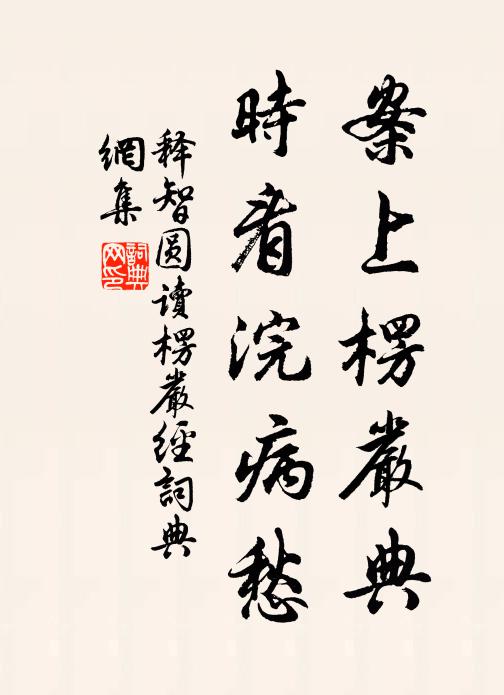 案上楞嚴典
時看浣病愁
释智圆讀楞嚴經詞典
網集
詞典
网印